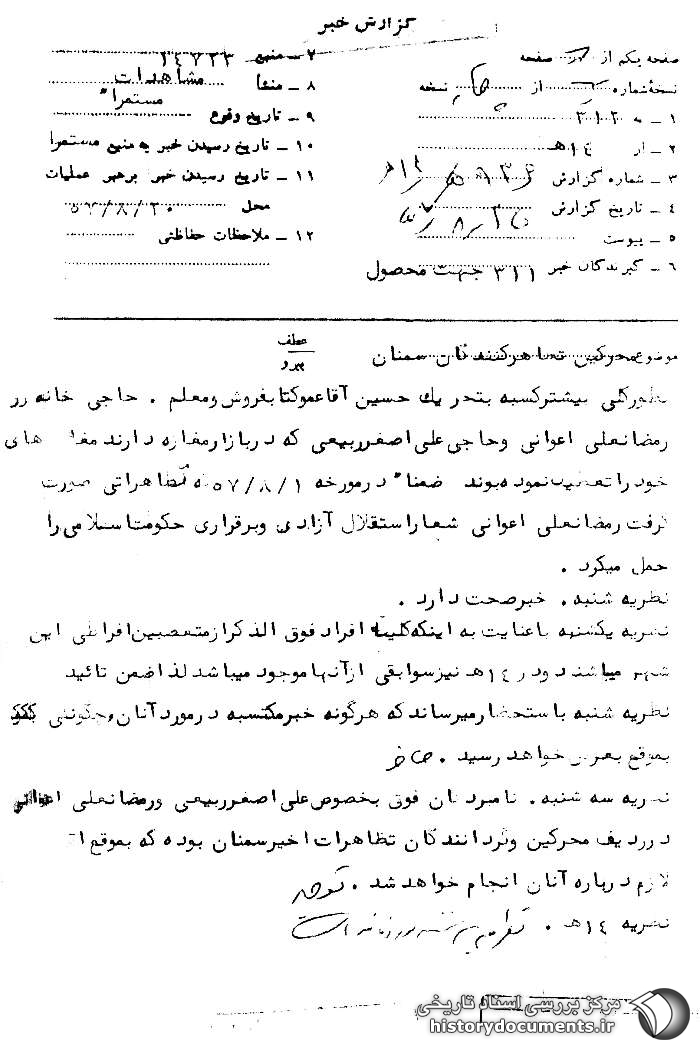 گزارش خبر
صفحه یکم از صفحه
نسخه شماره از نسخه
۱ ـ به ۳۱۲
۲ ـ از ۱۴هـ
۳ ـ شماره گزارش
۴ ـ تاریخ گزارش ۵۷/۸/۳۰
۵ ـ پیوست
۶ ـ گیرندگان خبر ۳۱۱ جهت محصول
۷ ـ منبع ۲۴۷۳۳
۸ ـ منشا مشاهدات
۹ ـ تاریخ وقوع مستمرا"
۱۰ ـ تاریخ رسیدن خبر به منبع مستمرا
۱۱ ـ تاریخ رسیدن خبر برهبر عملیات
محل ۵۷/۸/۳۰
۱۲ ـ ملاحظات حفاظتی
موضوع محرکین تظاهرکنندگان سمنان
عطف
پیرو
بطورکلی بیشترکسبه بتحریك حسین آقاعموکتابفروش ومعلم . حاجی خانه زر
رمضانعلی اعوانی وحاجی علی اصغرربیعی که دربازارمغازه دارند مغازه های
خودراتعطیل نموده بوند ضمنا" درمورخه ۵۷/۸/۱ که تظاهراتی صورت
گرفت رمضانعلی اعوانی شعاراستقلال آزادی وبرقراری حکومتاسلامی را
حمل میکرد .
نظریه شنبه. خبرصحت دارد .
نظریه یکشنبه باعنایت به اینکه کلیه افراد فوق الذکرازمتعصبین افراطی این
شهر میباشند ودر ۱۴هـ نیزسوابقی ازآنهاموجود میباشد لذاضمن تائید
نظریه شنبه باستحضارمیرساند که هرگونه خبرمکتسبه درمورد آنان وچگونگی
بموقع بعرض خواهد رسید .
نظریه سه شنبه. نامبردگان فوق بخصوص علی اصغرربیعی ورمضانعلی اعوانی
درردیف محرکین وگردانندگان تظاهرات اخیرسمنان بوده که بموقع
لازم درباره آنان انجام خواهد شد .
نظریه ۱۴هـ .
مرکز بررسی اسناد تاریخی
historydocuments.ir